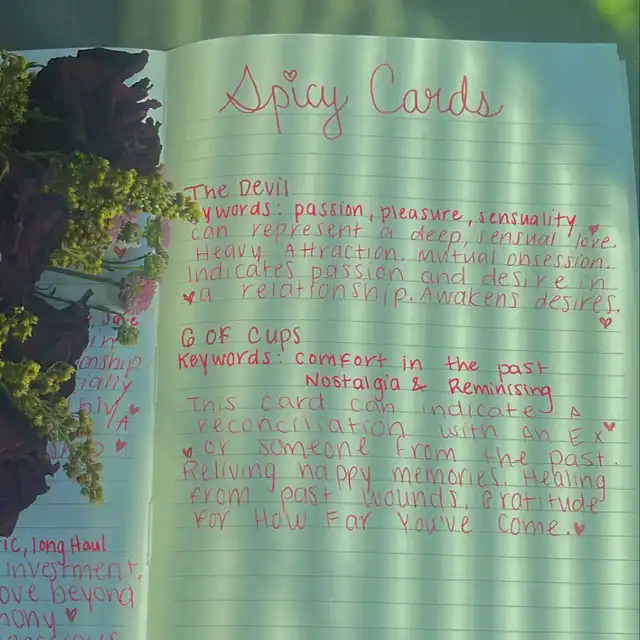 Spicy Cards
The Devil
ywords: passion, pleasure, sensuality
can represent a deep, sensual love.
Heavy Attraction. Mutual obsession.
Indicates passion and desire in
a relationship. Awakens desires.
6 OF CUPS
Keywords: comfort in the past
Nostalgia & Reminising
This card can indicate A
reconciliation with An Ex
or someone from the past.
Reliving happy memories. Healing
from past wounds. Gratitude
For How Far You've Come.
in
onship.
ially
A
ic, long Haul
investment.
ove beyond
mony